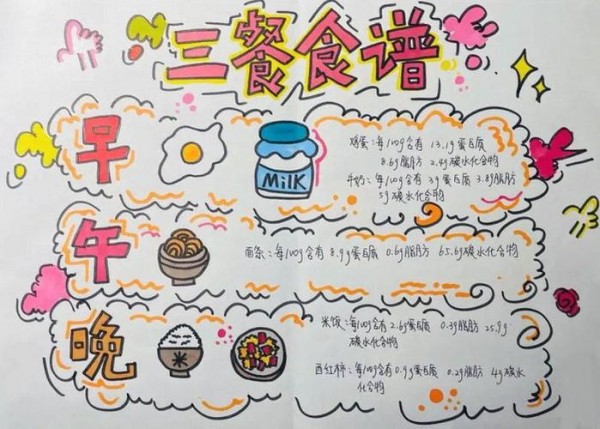 三餐食谱
早
MiLK
鸡蛋：每100g含有 13.1g蛋白质
8.6g脂肪 2.4g碳水化合物
牛奶：每100g含有 3g蛋白质 3.8g脂肪
5g碳水化合物
午
面条：每100g含有 8.9g蛋白质 0.6g脂肪 65.6g碳水化合物
晚
米饭：每100g含有2.6g蛋白质 0.3g脂肪 25.9g
碳水化合物
西红柿：每100g含有0.9g蛋白质 0.2g脂肪 4g碳水
化合物